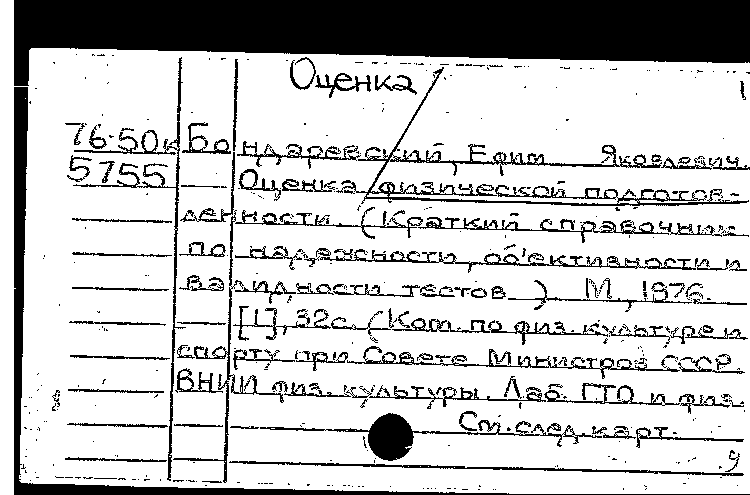 Оценка 1
76-50к Бондаревский, Ефим Яковлевич.
5755 Оценка физической подготов-
ленности. (Краткий справочник
по надежности, об'ективности и
валидности тестов). М., 1976.
[1], 32с. (Ком. по физ. культуре и
спорту при Совете Министров СССР.
ВНИИ физ. культуры. Лаб. ГТО и физ.
См. след. карт.
9